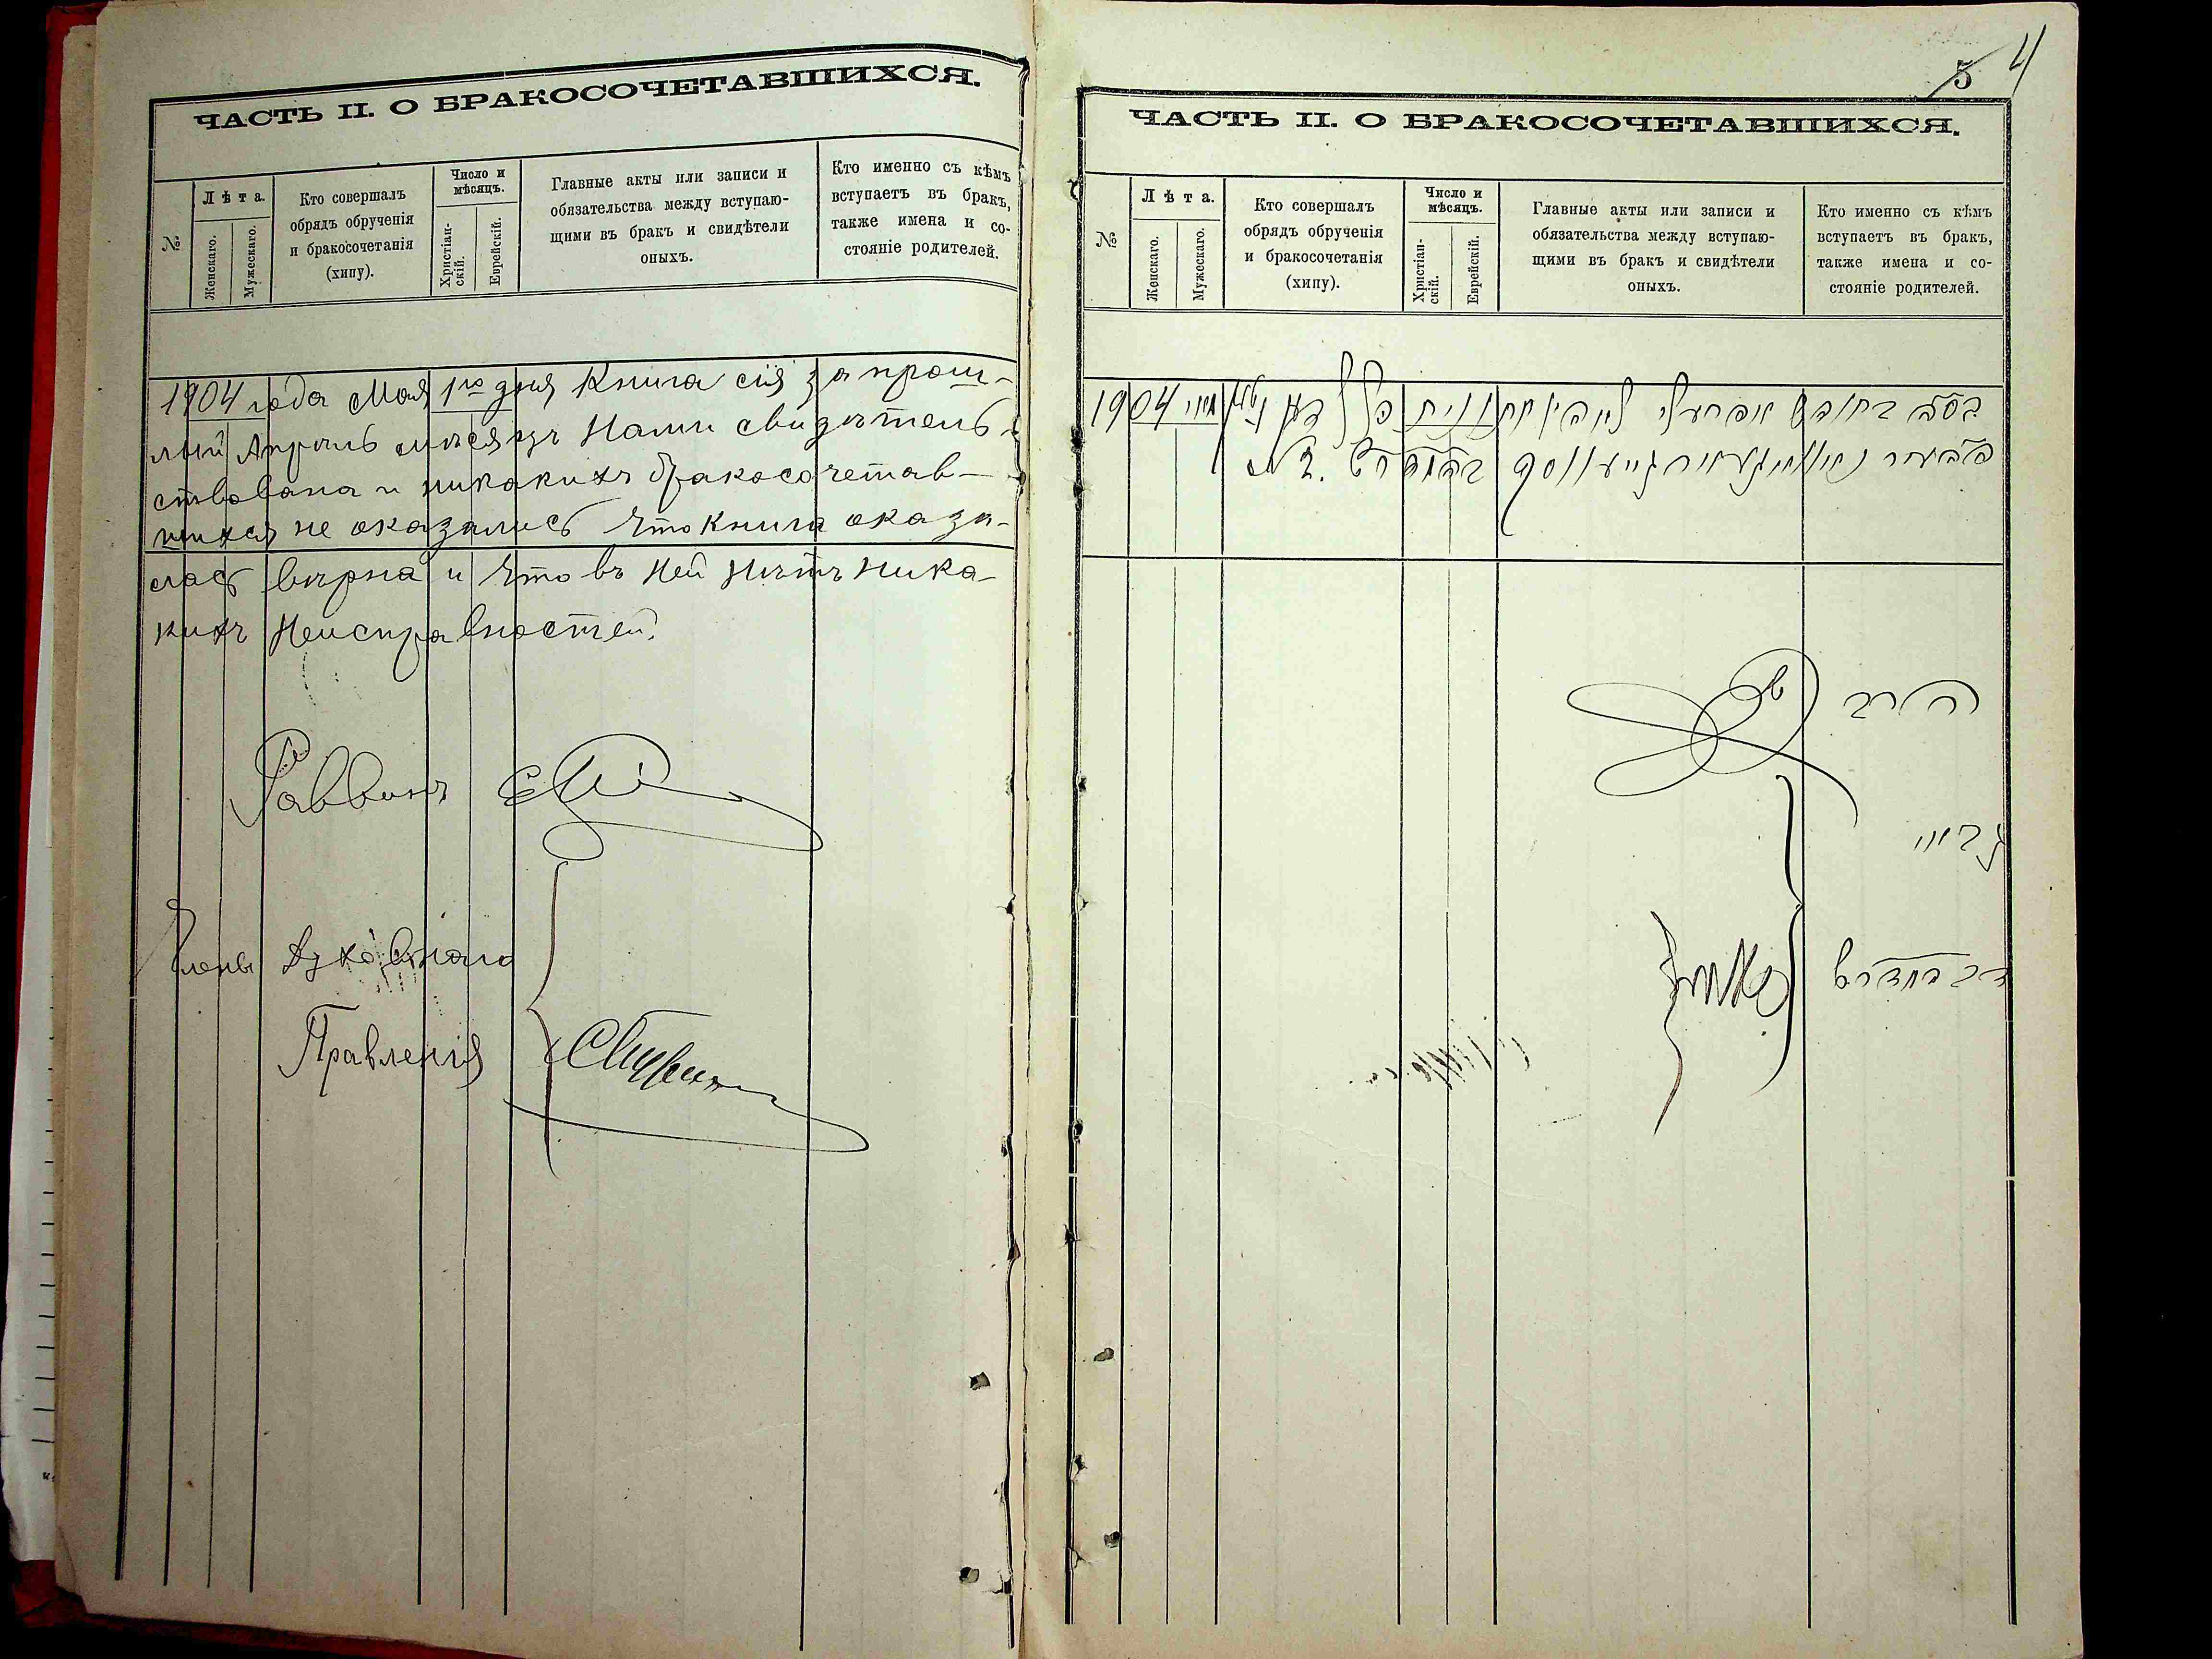 ЧАСТЬ II. О БРАКОСОЧЕТАВШИХСЯ.
№
Лѣта.
Женскаго.
Мужескаго.
Кто совершалъ
обрядъ обрученія
и бракосочетанія
(хипу).
Число и
мѣсяцъ.
Христіан-
скій.
Еврейскій.
Главные акты или записи и
обязательства между вступаю-
щими въ бракъ и свидѣтели
оныхъ.
Кто именно съ кѣмъ
вступаетъ въ бракъ,
также имена и со-
стояніе родителей.
1904 года Мая 1го дня Книга сія за прош-
лый Апрѣль мѣсяцъ Нами свидѣтель-
ствована и никакихъ бракосочетав-
шихся не оказалось что Книга оказа-
лась вѣрна и что въ ней нѣтъ ника-
кихъ Неисправностей.
Раввинъ
Члены Духовнаго
Правленія
5 4
ЧАСТЬ II. О БРАКОСОЧЕТАВШИХСЯ.
№
Лѣта.
Женскаго.
Мужескаго.
Кто совершалъ
обрядъ обрученія
и бракосочетанія
(хипу).
Число и
мѣсяцъ.
Христіан-
скій.
Еврейскій.
Главные акты или записи и
обязательства между вступаю-
щими въ бракъ и свидѣтели
оныхъ.
Кто именно съ кѣмъ
вступаетъ въ бракъ,
также имена и со-
стояніе родителей.
1904 מאי
הרב
גבאי